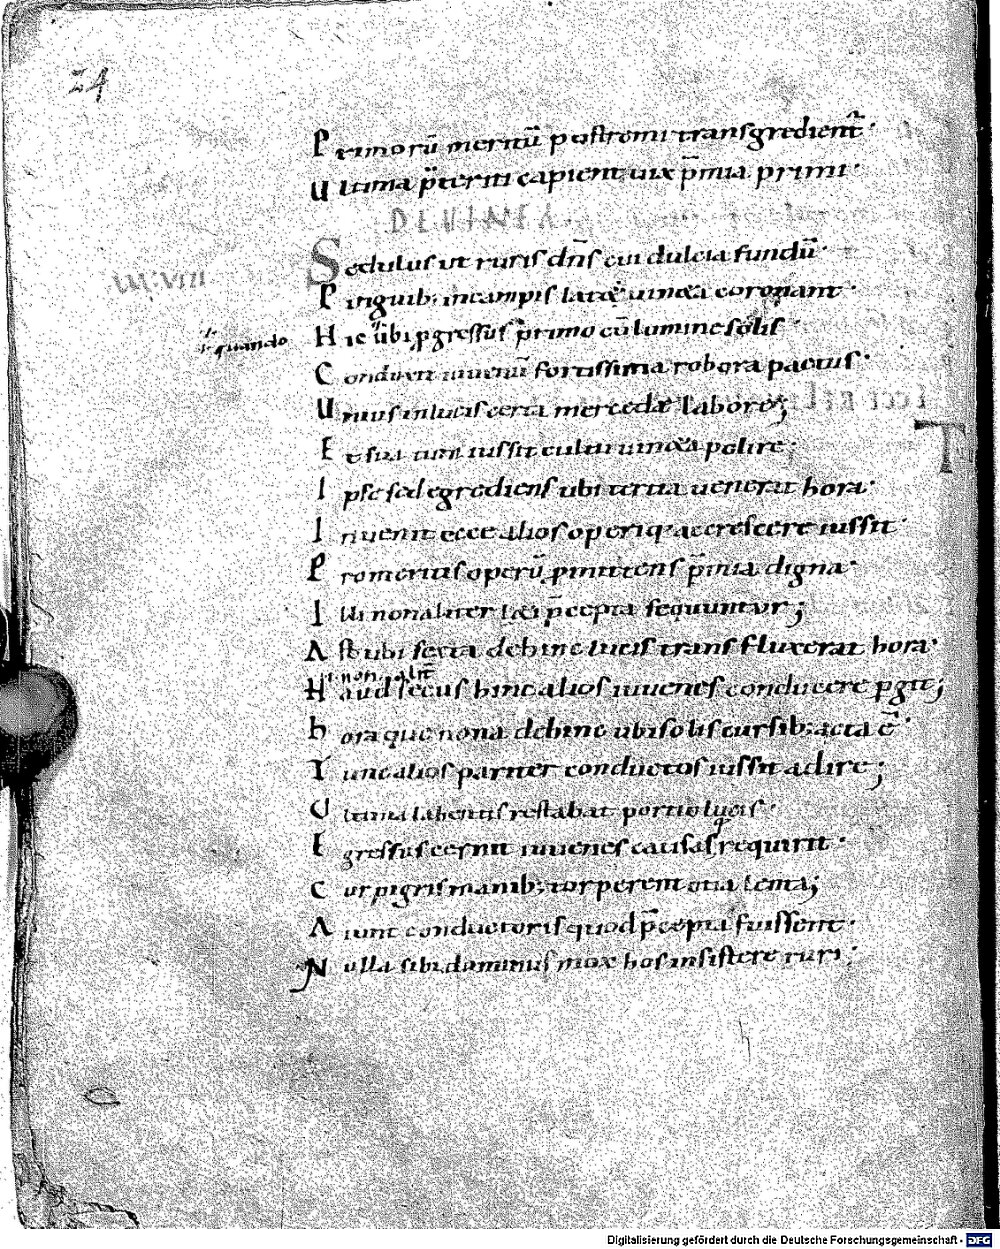 24
Primorū meritū postremi transgredient̄·
Ultima p̄teriti capient uix p̄mia primi·
DE UINEA·
Sedulus ut ruris dn̄s cui dulcia fundū·
Pinguib; in campis laetę uineta coronant·
ł quando
Hic ubi ꝓgressus primo cū lumine solis·
Conduxit iuuenū fortissima robora pactus·
Unius in lucis certa mercede labore;
Et sua tum iussit cultu uineta polire;
Ipse sed egrediens ubi tertia uenerat hora·
Inuenit ecce alios operiq; accrescere iussit·
Pro meritis operū promittens p̄mia digna·
Illi non aliter laeti p̄cepta sequuntur;
Ast ubi sexta dehinc lucis transfluxerat hora·
i non alit̄
Haud secus hinc alios iuuenes conducere ꝑgit;
hora que nona dehinc ubi solis cursib; acta ē·
Tunc alios pariter conductos iussit adire;
Ultima labentis restabat portio lucis·
Egressus cernit iuuenes causasq; requirit·
Cur pigris manib; torperent otia lenta;
Aiunt conductoris quod p̄cepta fuissent·
Nulla sibi dominus mox hos insistere ruri;
Digitalisierung gefördert durch die Deutsche Forschungsgemeinschaft - DFG